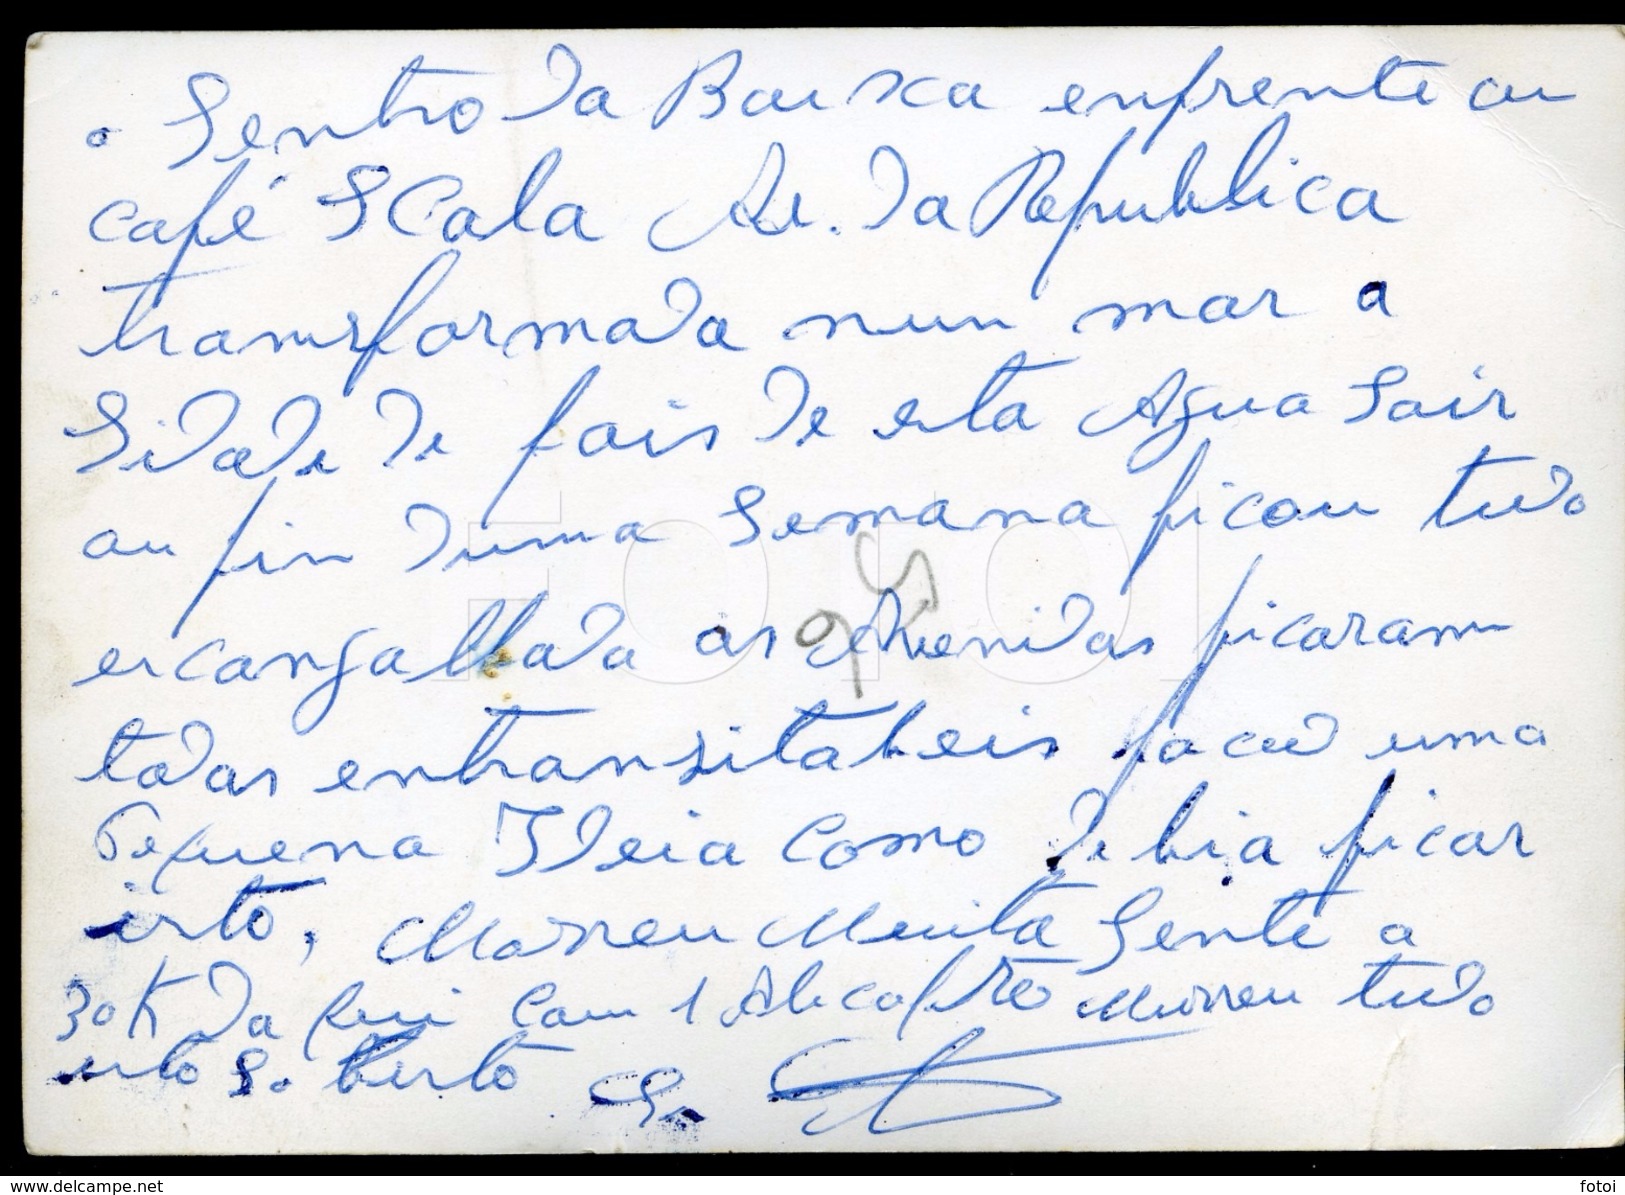 o Sentro da Baixa enfrente au
café Scala Av. da Republica
transformada nun mar a
Sidade de pois de esta Agua Sair
au fin duma Semana ficou tudo
escangalhada as Avenidas ficaram
todas entranzitabeis faco uma
Pequena Ideia Como debia ficar
isto, Morreu Muita Gente a
30 K da qui Cau 1 Alicoptro Murreu tudo
isto So bisto
FOTOI
www.delcampe.net
fotoi